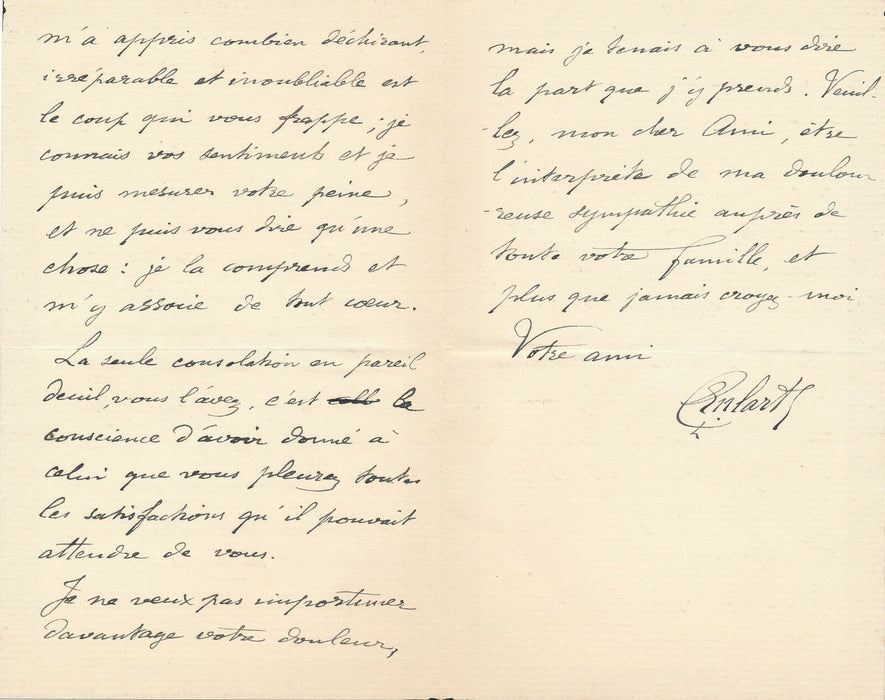 m'a appris combien déchirant,
irréparable et inoubliable est
le coup qui vous frappe ; je
connais vos sentiments et je
puis mesurer votre peine,
et ne puis vous dire qu'une
chose : je la comprends et
m'y associe de tout cœur.
La seule consolation en pareil
deuil, vous l'avez, c'est celle la
conscience d'avoir donné à
celui que vous pleurez toutes
les satisfactions qu'il pouvait
attendre de vous.
Je ne veux pas importuner
davantage votre douleur,
mais je tenais à vous dire
la part que j'y prends. Veuil-
-lez, mon cher Ami, être
l'interprète de ma doulou-
-reuse sympathie auprès de
toute votre famille, et
plus que jamais croyez-moi
Votre ami
CEnlart